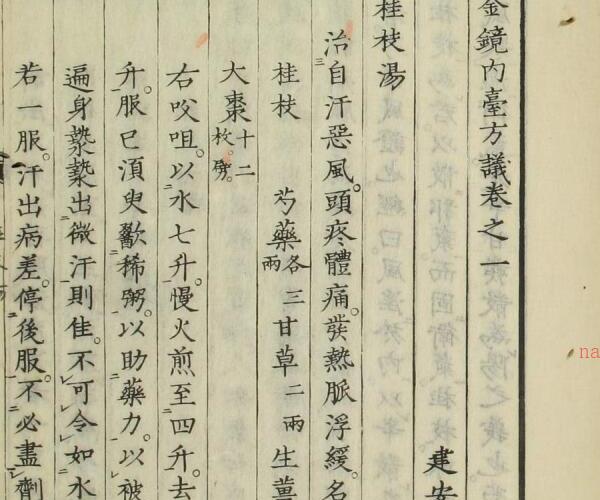 金鏡內臺方議卷之一
建安
桂枝湯
治自汗惡風。頭疼體痛。發熱脈浮緩。名
桂枝 芍藥各三兩 甘草二兩 生薑
大棗十二枚。劈。
右㕮咀。以水七升。慢火煎至四升。去
升。服已須臾歠稀粥。以助藥力。以被
遍身漐漐出微汗則佳。不可令如水
若一服。汗出病差。停後服。不必盡劑
na